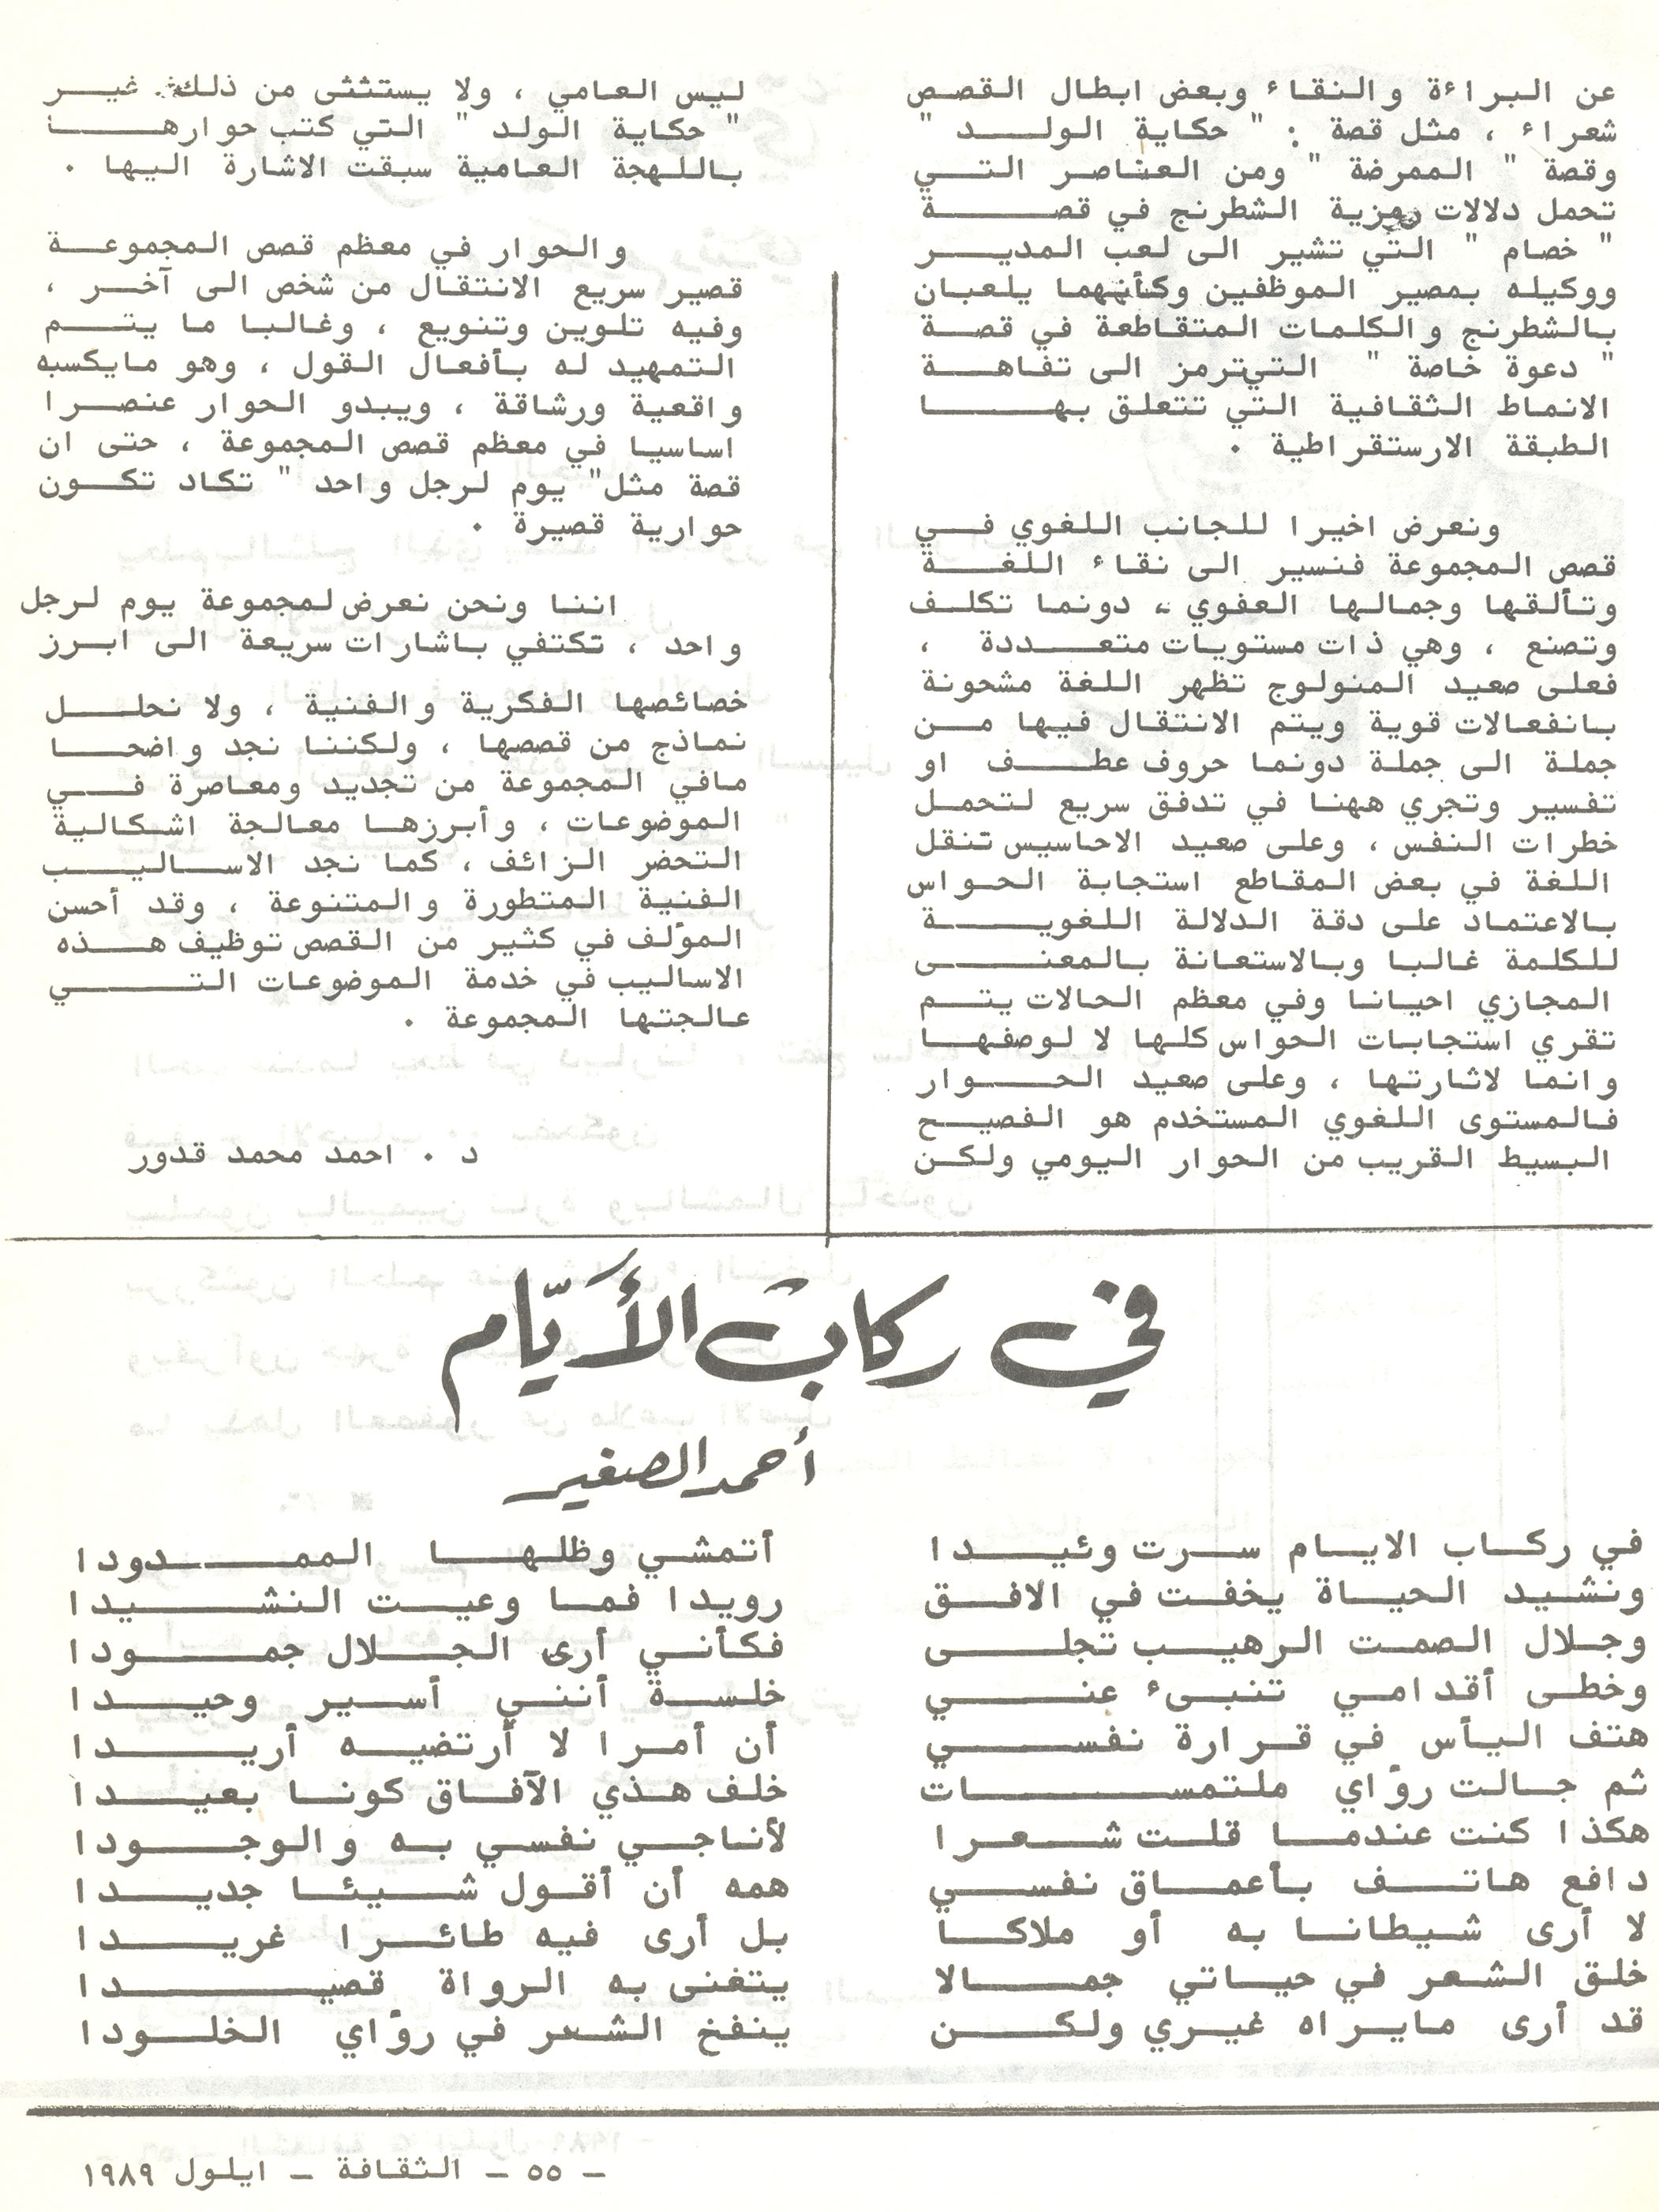 عن البراءة والنقاء وبعض ابطال القصص
شعراء ، مثل قصة : " حكاية الولد "
وقصة " الممرضة " ومن العناصر التي
تحمل دلالات رمزية الشطرنج في قصة
" خصام " التي تشير الى لعب المدير
ووكيله بمصير الموظفين وكأنهما يلعبان
بالشطرنج والكلمات المتقاطعة في قصة
" دعوة خاصة " التي ترمز الى تفاهة
الانماط الثقافية التي تتعلق بها
الطبقة الارستقراطية .
ونعرض اخيرا للجانب اللغوي في
قصص المجموعة فنسير الى نقاء اللغة
وتألقها وجمالها العفوي ، دونما تكلف
وتصنع ، وهي ذات مستويات متعددة ،
فعلى صعيد المنولوج تظهر اللغة مشحونة
بانفعالات قوية ويتم الانتقال فيها من
جملة الى جملة دونما حروف عطف او
تفسير وتجري ههنا في تدفق سريع لتحمل
خطرات النفس ، وعلى صعيد الاحاسيس تنقل
اللغة في بعض المقاطع استجابة الحواس
بالاعتماد على دقة الدلالة اللغوية
للكلمة غالبا وبالاستعانة بالمعنى
المجازي احيانا وفي معظم الحالات يتم
تقري استجابات الحواس كلها لا لوصفها
وانما لاثارتها ، وعلى صعيد الحوار
فالمستوى اللغوي المستخدم هو الفصيح
البسيط القريب من الحوار اليومي ولكن
ليس العامي ، ولا يستثثى من ذلك غير
" حكاية الولد " التي كتب حوارها
باللهجة العامية سبقت الاشارة اليها .
والحوار في معظم قصص المجموعة
قصير سريع الانتقال من شخص الى آخر ،
وفيه تلوين وتنويع ، وغالبا ما يتم
التمهيد له بأفعال القول ، وهو مايكسبه
واقعية ورشاقة ، ويبدو الحوار عنصرا
اساسيا في معظم قصص المجموعة ، حتى ان
قصة مثل" يوم لرجل واحد " تكاد تكون
حوارية قصيرة .
اننا ونحن نعرض لمجموعة يوم لرجل
واحد ، تكتفي باشارات سريعة الى ابرز
خصائصها الفكرية والفنية ، ولا نحلل
نماذج من قصصها ، ولكننا نجد واضحا
مافي المجموعة من تجديد ومعاصرة في
الموضوعات ، وأبرزها معالجة اشكالية
التحضر الزائف ، كما نجد الاساليب
الفنية المتطورة والمتنوعة ، وقد أحسن
المؤلف في كثير من القصص توظيف هذه
الاساليب في خدمة الموضوعات التي
عالجتها المجموعة .
د . احمد محمد قدور
في ركاب الأيّام
أحمد الصغير
في ركاب الايام سرت وئيدا أتمشي وظلها الممدودا
ونشيد الحياة يخفت في الافق رويدا فما وعيت النشيدا
وجلال الصمت الرهيب تجلى فكأني أرى الجلال جمودا
وخطى أقدامي تنبىء عني خلسة أنني أسير وحيدا
هتف اليأس في قرارة نفسي أن أمرا لا أرتضيه أريدا
ثم جالت رؤاي ملتمسات خلف هذي الآفاق كونا بعيدا
هكذا كنت عندما قلت شعرا لأناجي نفسي به والوجودا
دافع هاتف بأعماق نفسي همه أن أقول شيئا جديدا
لا أرى شيطانا به أو ملاكا بل أرى فيه طائرا غريدا
خلق الشعر في حياتي جمالا يتغنى به الرواة قصيدا
قد أرى مايراه غيري ولكن ينفخ الشعر في رؤاي الخلودا
ـ ٥٥ ـ الثقافة ـ ايلول ١٩٨٩